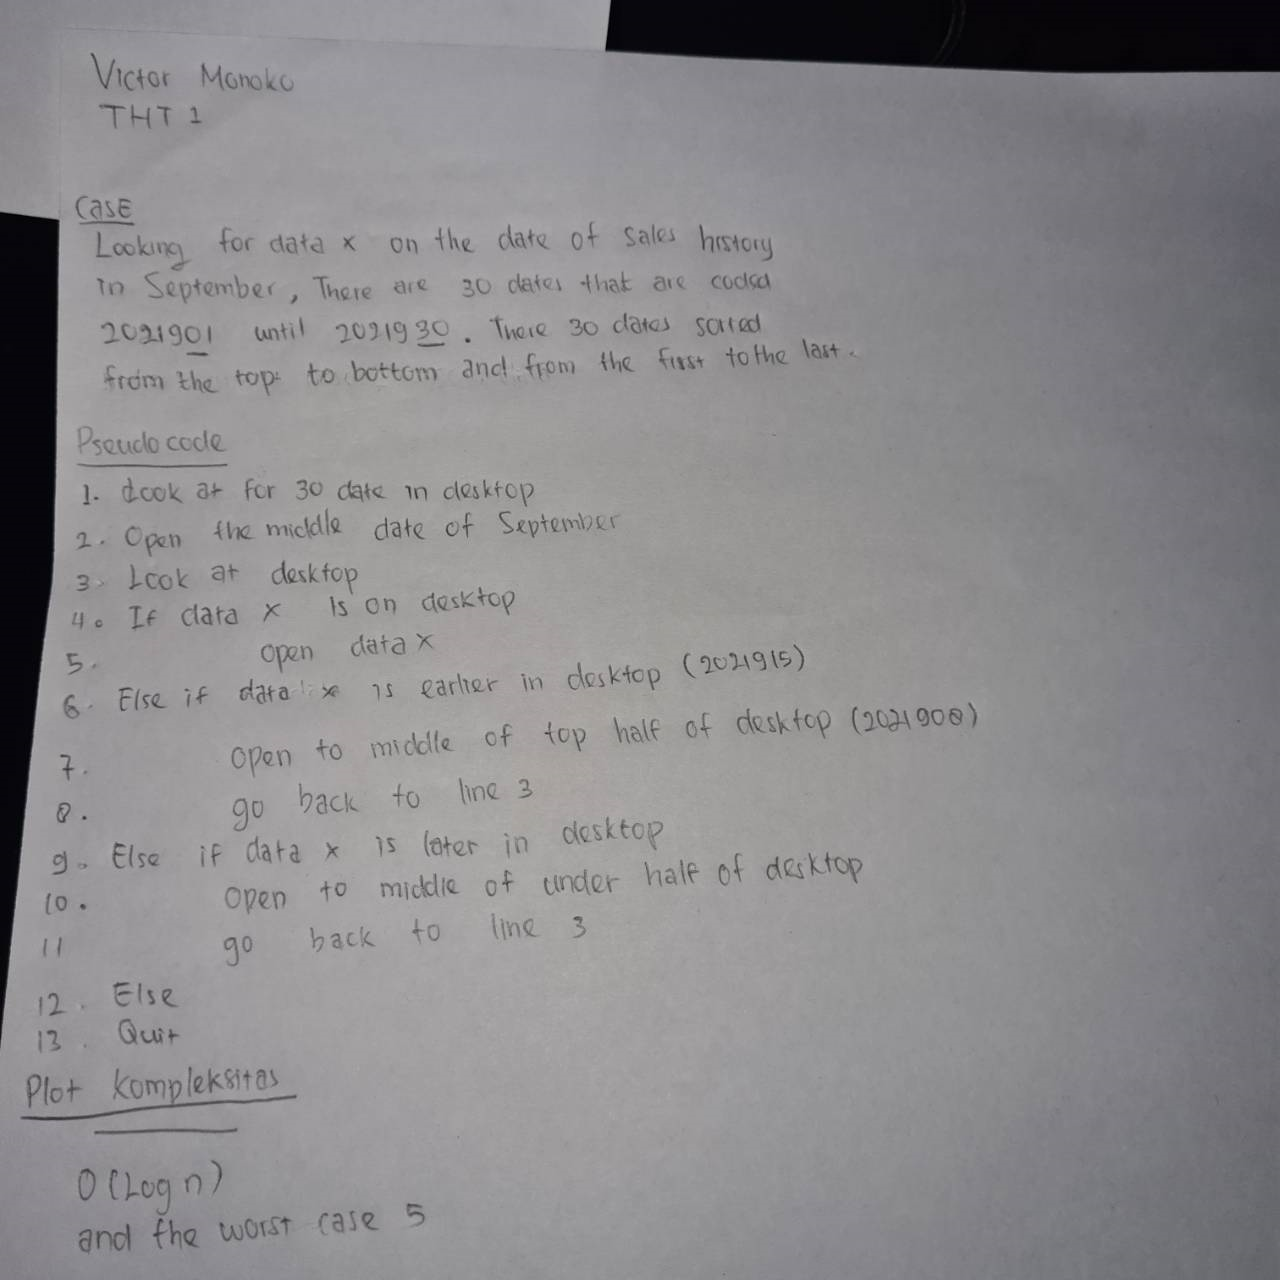 Victor Monoko
THT 1
Case
Looking for data x on the date of sales history
in September, There are 30 dates that are coded
2021901 until 2021930. There 30 dates sorted
from the top to bottom and from the first to the last.
Pseudocode
1. Look at for 30 date in desktop
2. Open the middle date of September
3. Look at desktop
4. If data x is on desktop
5. open data x
6. Else if data x is earlier in desktop (2021915)
7. open to middle of top half of desktop (2021908)
8. go back to line 3
9. Else if data x is later in desktop
10. open to middle of under half of desktop
11 go back to line 3
12. Else
13. Quit
Plot Kompleksitas
O(Log n)
and the worst case 5